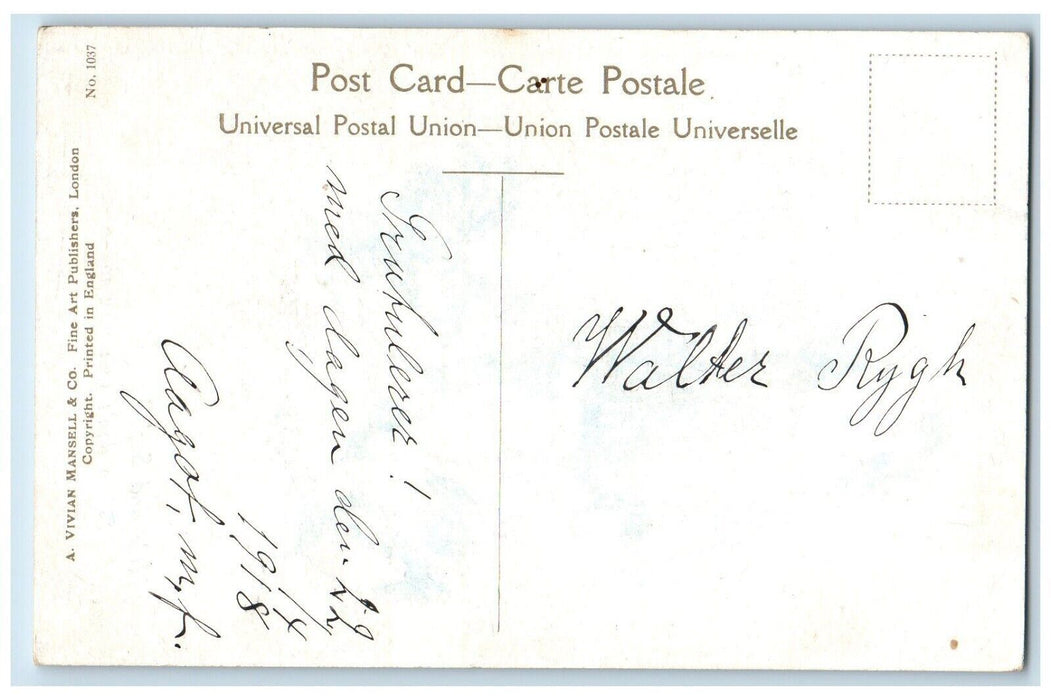 Post Card—Carte Postale.
Universal Postal Union—Union Postale Universelle
A. VIVIAN MANSELL & CO. Fine Art Publishers, London
Copyright. Printed in England
No. 1037
Gratulerer!
med dagen den 22
1918
Aagot, m, f.
Walter Rygh